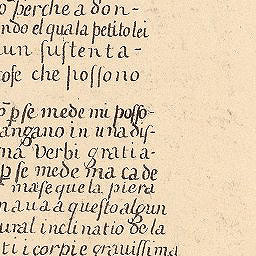 o perche a don-
ndo el qua la petito lei
un sustenta-
cose che possono
p se mede mi posso-
angano in una dis-
na verbi gratia-
p se mede ma cade
ma se que la piera
n aua a questo alqun
ural inclinatio de la
ti i corpi e grauissima